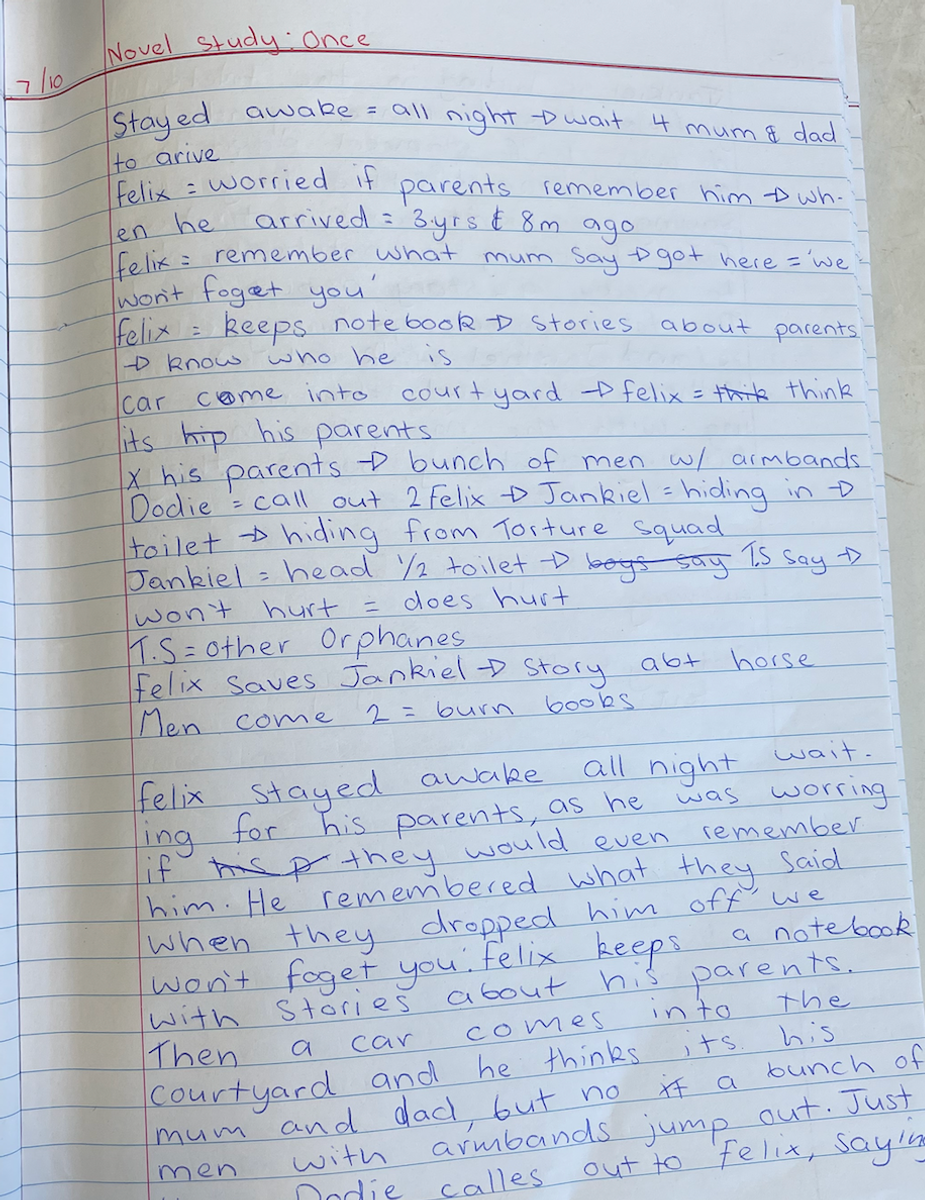 Novel study: Once
7/10
Stayed awake = all night → wait 4 mum & dad
to arive
felix = worried if parents remember him → wh-
en he arrived = 3 yrs & 8m ago
felix = remember what mum say → got here = 'we
won't foget you'
felix = keeps notebook → stories about parents
→ know who he is
car come into courtyard → felix = thik think
its hip his parents
X his parents → bunch of men w/ armbands
Dodie = call out 2 Felix → Jankiel = hiding in →
toilet → hiding from Torture Squad
Jankiel = head 1/2 toilet → boys say T.S say →
won't hurt = does hurt
T.S = other Orphanes
felix saves Jankiel → story abt horse
Men come 2 = burn books
felix stayed awake all night wait-
ing for his parents, as he was worring
if his p they would even remember
him. He remembered what they said
when they dropped him off "we
won't foget you". felix keeps a notebook
with stories about his parents.
Then a car comes into the
courtyard and he thinks its his
mum and dad, but no it a bunch of
men with armbands jump out. Just
Dodie calles out to felix, saying